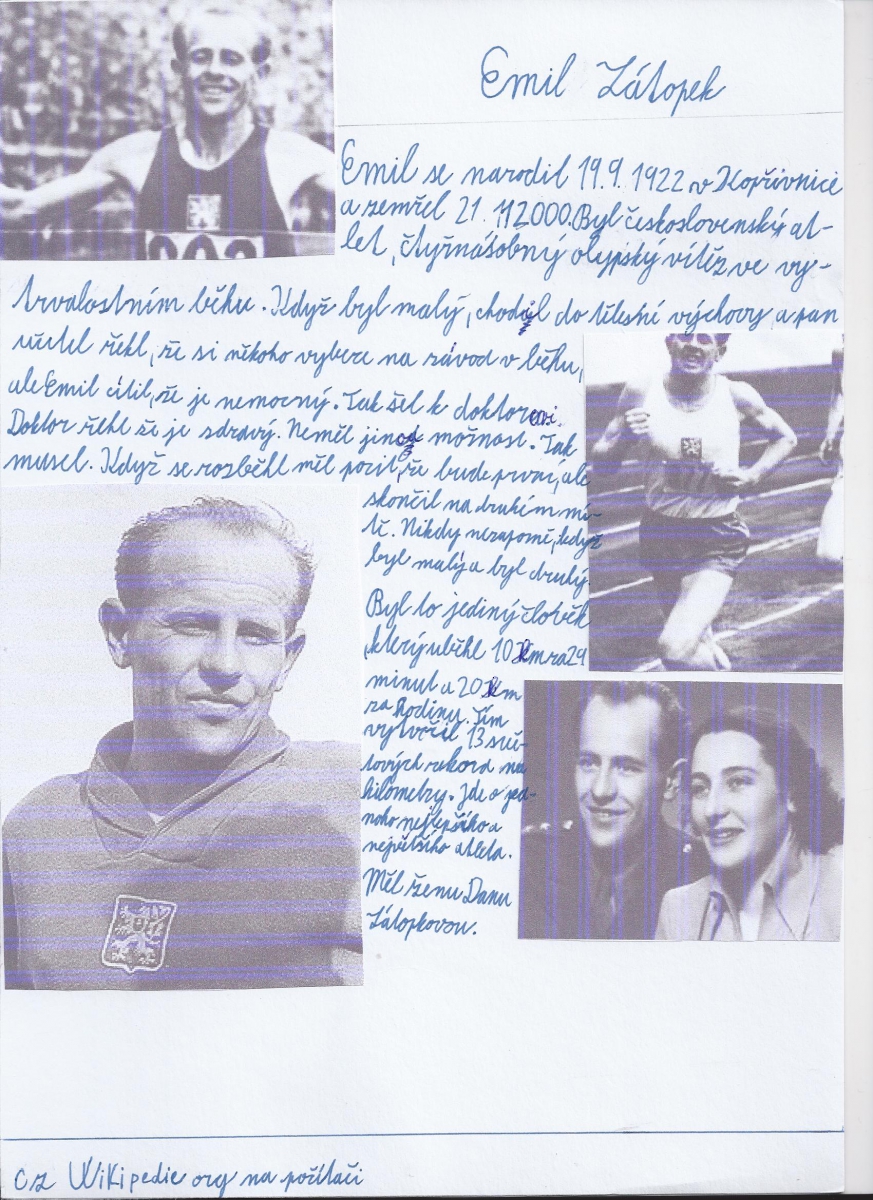 Emil Zátopek
Emil se narodil 19.9. 1922 v Kopřivnici
a zemřel 21. 112000. Byl československý at-
let, čtyřnásobný olypský vítěz ve vy-
trvalostním běhu. Když byl malý, chodil do tělesné výchovy a pan
učitel řekl, že si někoho vybere na závod v běhu,
ale Emil cítil, že je nemocný. Tak šel k doktorovi.
Doktor řekl že je zdravý. Neměl jinou možnost. Tak
musel. Když se rozběhl měl pocit, že bude první, ale
skončil na druhém mí-
tě. Nikdy nezapomě, když
byl malý a byl druhý.
Byl to jediný člověk
,který uběhl 10 km za 29
minut a 20 km
za hodinu. Tím
vytvořil 13 svě-
tových rekord na
kilometry. Jde o jed-
noho nejlepšího a
největšího atleta.
Měl ženu Danu
Zátopkovou.
cz Wikipedie org na počítači